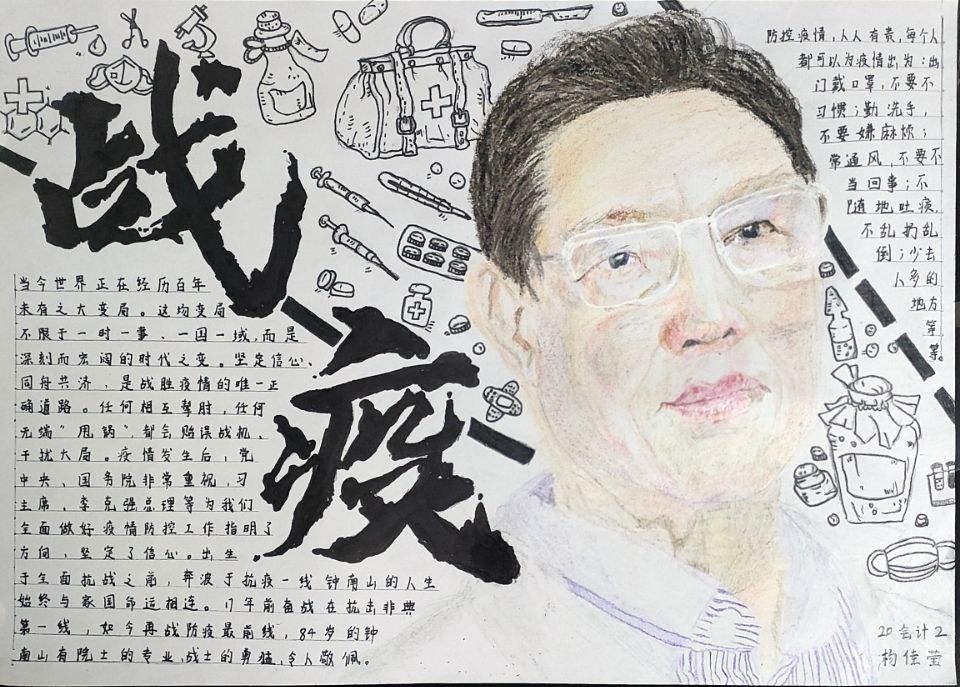 战疫
当今世界正在经历百年
未有之大变局。这场变局
不限于一时一事、一国一域,而是
深刻而宏阔的时代之变。坚定信心、
同舟共济,是战胜疫情的唯一正
确道路。任何相互掣肘,任何
无端“甩锅”,都会贻误战机、
干扰大局。疫情发生后,党
中央、国务院非常重视,习
主席、李克强总理等为我们
全面做好疫情防控工作指明了
方向,坚定了信心。出生
于全面抗战之前,奔波于抗疫一线钟南山的人生
始终与家国命运相连。17年前奋战在抗击非典
第一线,如今再战防疫最前线,84岁的钟
南山有院士的专业,战士的勇猛,令人敬佩。
防控疫情,人人有责,每个人
都可以为疫情出为:出
门戴口罩,不要不
习惯;勤洗手,
不要嫌麻烦;
常通风,不要不
当回事;不
随地吐痰,
不乱扔乱
倒;少去
人多的
地方
等
等。
20会计2
佳莹